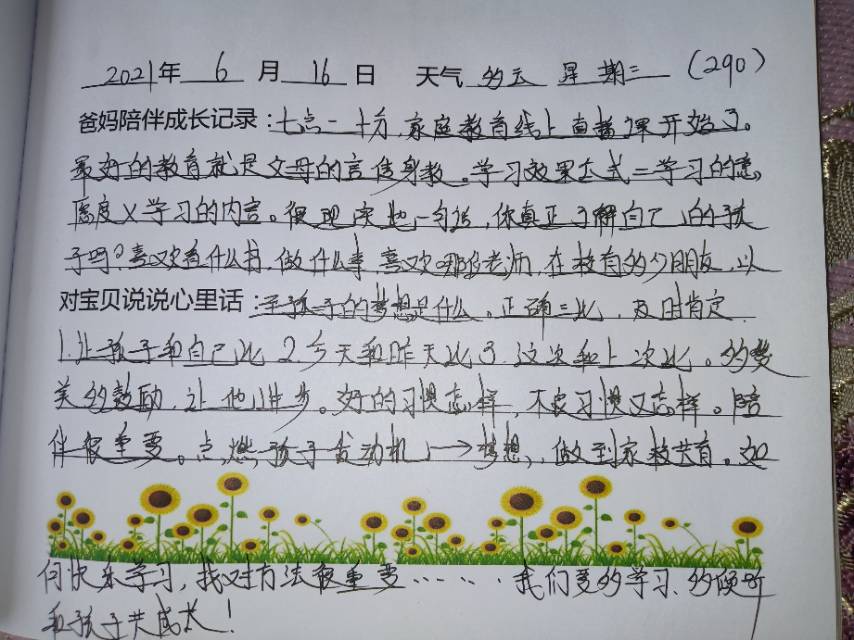 2021年 6 月 16 日 天气 多云 星期三 (290)
爸妈陪伴成长记录:七点一十分,家庭教育线上直播课开始了。
最好的教育就是父母的言传身教。学习效果公式=学习的意愿
度X学习的内容。很现实地一句话,你真正了解自己的孩
子吗?喜欢看什么书,做什么事,喜欢哪位老师,在校有多少朋友,以
对宝贝说说心里话:至孩子的梦想是什么。正确三比,及时肯定
1.让孩子和自己比 2.今天和昨天比 3.这次和上次比。多赞
美多鼓励,让他进步。好的习惯怎样,不良习惯又怎样。陪
伴很重要。点燃孩子发动机→梦想,做到家校共育。如
何快乐学习,找对方法很重要……我们要多学习、多倾听
和孩子共成长!